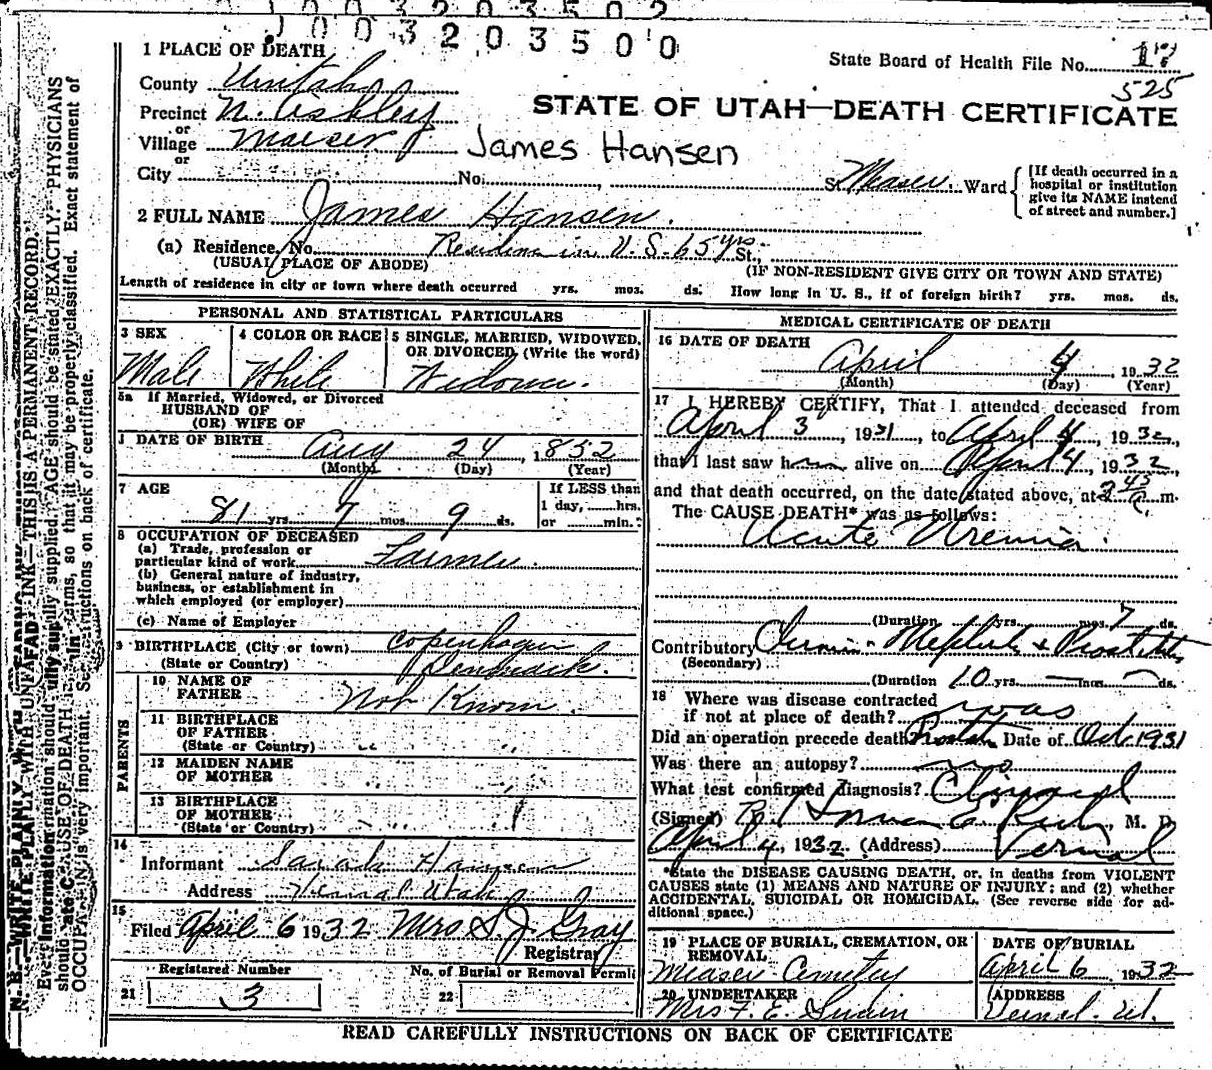 1003203500
1 PLACE OF DEATH
State Board of Health File No.
525
County Uintah
Precinct N. Ashley
STATE OF UTAH—DEATH CERTIFICATE
or
Village Maeser
James Hansen
or
City No. S. Maeser Ward
[If death occurred in a hospital or institution give its NAME instead of street and number.]
2 FULL NAME James Hansen.
(a) Residence, No. Residence in U. S. 65 yrs St.,
(USUAL PLACE OF ABODE) (IF NON-RESIDENT GIVE CITY OR TOWN AND STATE)
Length of residence in city or town where death occurred yrs. mos. ds. How long in U. S., if of foreign birth? yrs. mos. ds.
PERSONAL AND STATISTICAL PARTICULARS
3 SEX
Male
4 COLOR OR RACE
White
5 SINGLE, MARRIED, WIDOWED, OR DIVORCED, (Write the word)
5a If Married, Widowed, or Divorced
HUSBAND OF
(OR) WIFE OF
DATE OF BIRTH
Aug 24, 1852
(Month) (Day) (Year)
7 AGE
81 yrs. 7 mos. 9 ds.
If LESS than
1 day, hrs.
or min.
8 OCCUPATION OF DECEASED
(a) Trade, profession or
particular kind of work Farmer.
(b) General nature of industry,
business, or establishment in
which employed (or employer)
(c) Name of Employer
9 BIRTHPLACE (City or town) Copenhagen
(State or Country) Denmark.
PARENTS
10 NAME OF
FATHER Not Known.
11 BIRTHPLACE
OF FATHER
(State or Country) " "
12 MAIDEN NAME
OF MOTHER
13 BIRTHPLACE
OF MOTHER
(State or Country)
14
Informant Sarah Hansen
Address Vernal Utah
15
Filed April 6 1932 Mrs S. J. Gray
Registrar
Registered Number
21 3
No. of Burial or Removal Permit
22
MEDICAL CERTIFICATE OF DEATH
16 DATE OF DEATH
April 4, 1932
(Month) (Day) (Year)
17 I HEREBY CERTIFY, That I attended deceased from
April 3, 1931, to April 4, 1932,
that I last saw him alive on April 4, 1932,
and that death occurred, on the date stated above, at 2 45 a. m.
The CAUSE DEATH* was as follows:
Acute Uremia.
(Duration yrs. mos. 7 ds.
Contributory
(Secondary)
(Duration 10 yrs. — mos. — ds.
18 Where was disease contracted
if not at place of death? was
Did an operation precede death Date of Oct. 1931
Was there an autopsy? no
What test confirmed diagnosis? Clinical
(Signed) M. D.
April 4, 1932 (Address) Vernal
*State the DISEASE CAUSING DEATH, or, in deaths from VIOLENT
CAUSES state (1) MEANS AND NATURE OF INJURY; and (2) whether
ACCIDENTAL, SUICIDAL OR HOMICIDAL. (See reverse side for ad-
ditional space.)
19 PLACE OF BURIAL, CREMATION, OR
REMOVAL
Measer Cemetery
DATE OF BURIAL
April 6 1932
20 UNDERTAKER
Mrs F. E. Swain
ADDRESS
Vernal. Ut.
READ CAREFULLY INSTRUCTIONS ON BACK OF CERTIFICATE